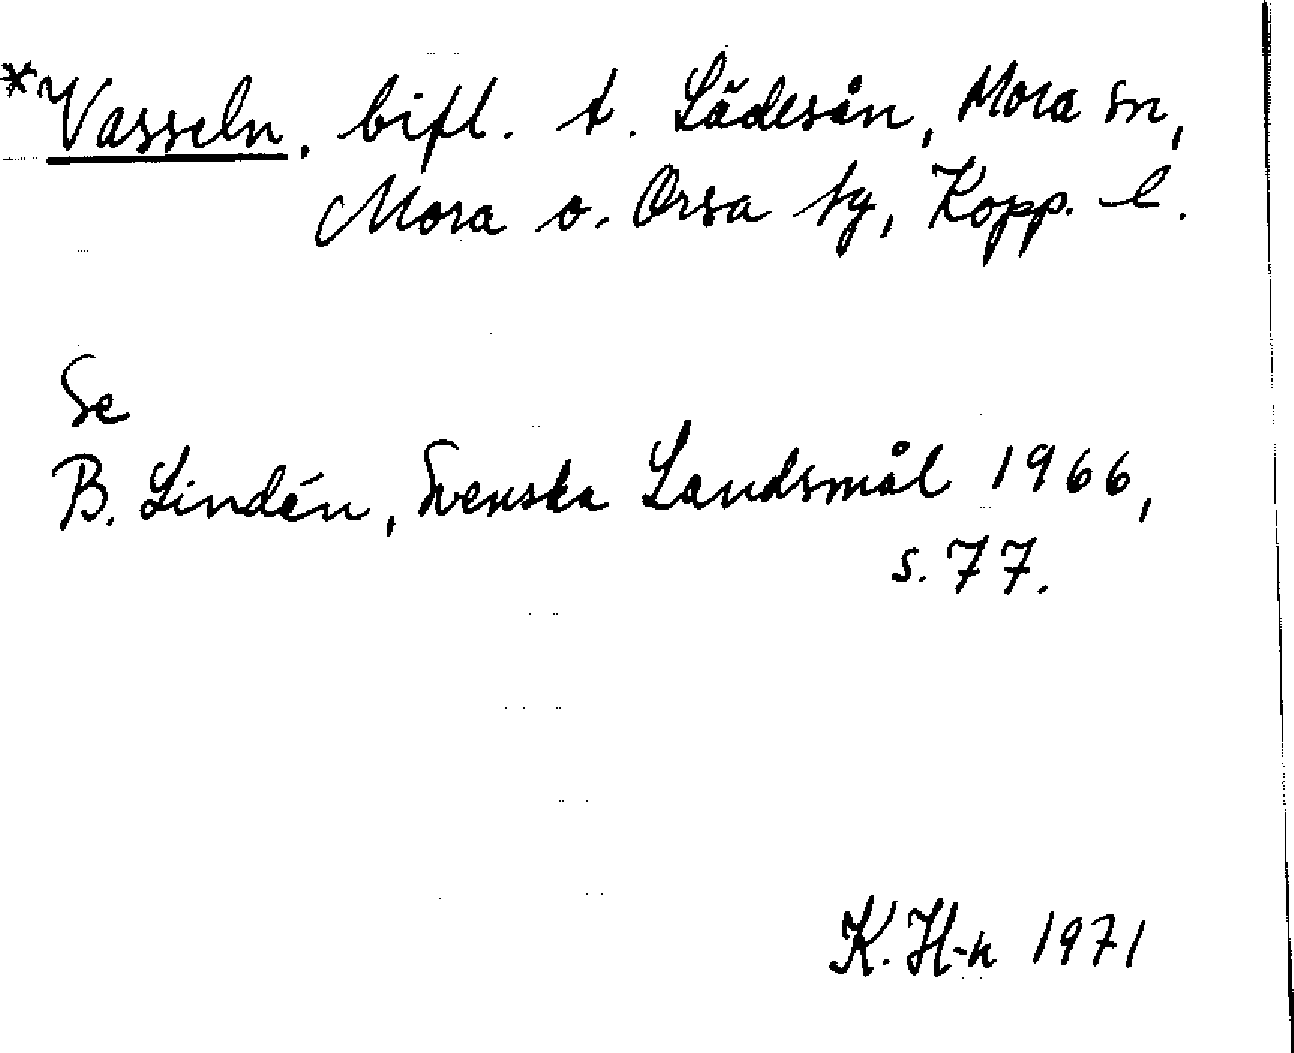 *Vasseln, bifl. t. Lädesån, Mora sn,
Mora o. Orsa tg, Kopp. l.
Se
B. Lindén, Svenska Landsmål 1966,
s. 77.
K. H-n 1971